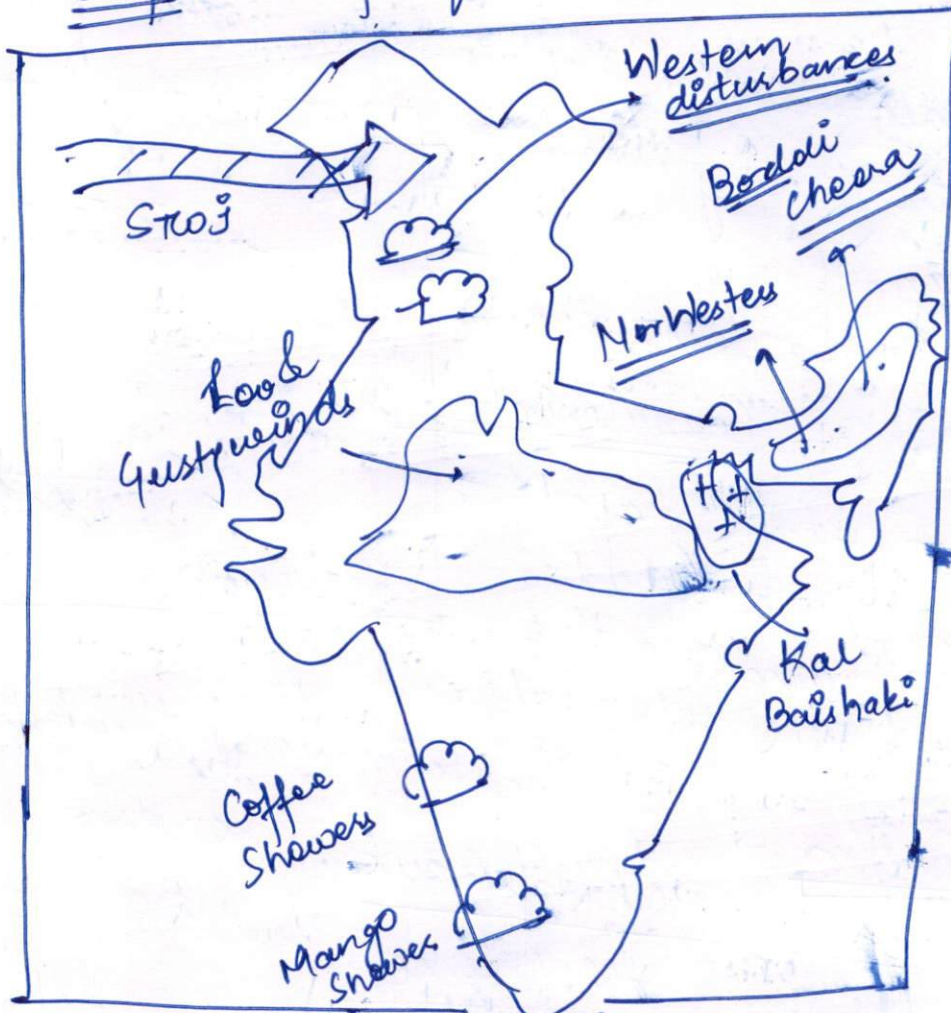 Western
disturbances
Bordoli
cheera
STWJ
NorWesters
Loo &
Gustywinds
Kal
Baishaki
Coffee
Showers
Mango
Shower